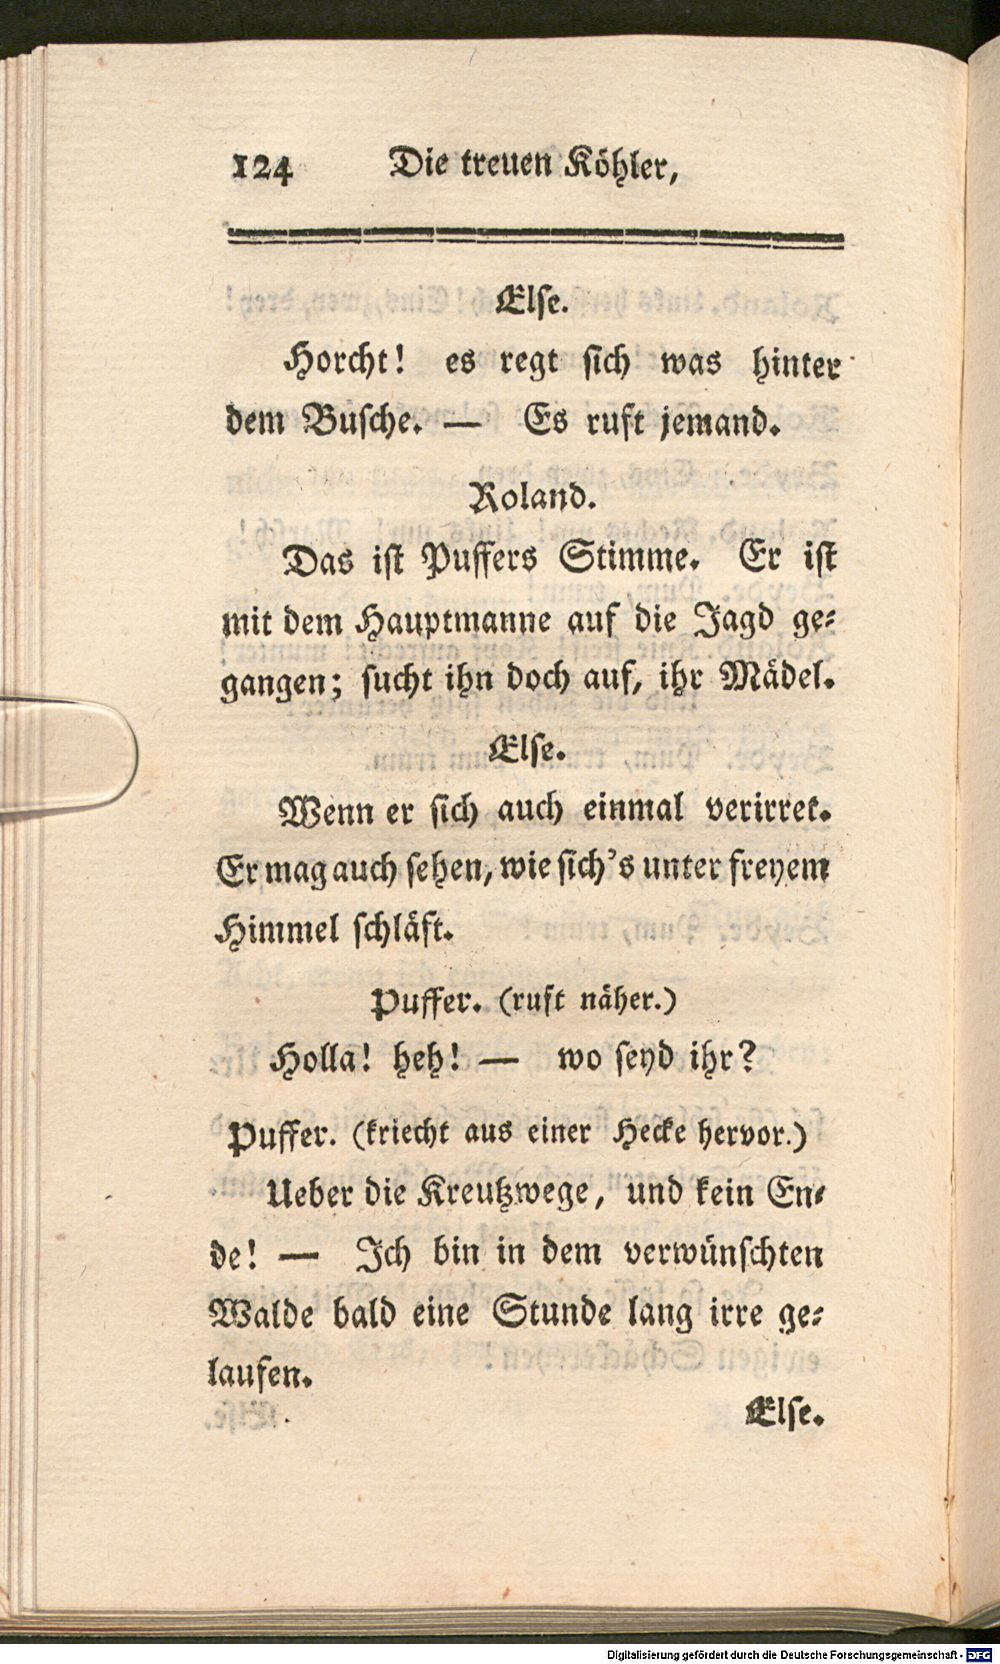 124 Die treuen Köhler,
Else.
Horcht! es regt sich was hinter
dem Busche. — Es ruft jemand.
Roland.
Das ist Puffers Stimme. Er ist
mit dem Hauptmanne auf die Jagd ge-
gangen; sucht ihn doch auf, ihr Mädel.
Else.
Wenn er sich auch einmal verirret.
Er mag auch sehen, wie sich's unter freyem
Himmel schläft.
Puffer. (ruft näher.)
Holla! heh! — wo seyd ihr?
Puffer. (kriecht aus einer Hecke hervor.)
Ueber die Kreutzwege, und kein En-
de! — Ich bin in dem verwünschten
Walde bald eine Stunde lang irre ge-
laufen.
Else.
Digitalisierung gefördert durch die Deutsche Forschungsgemeinschaft - DFG